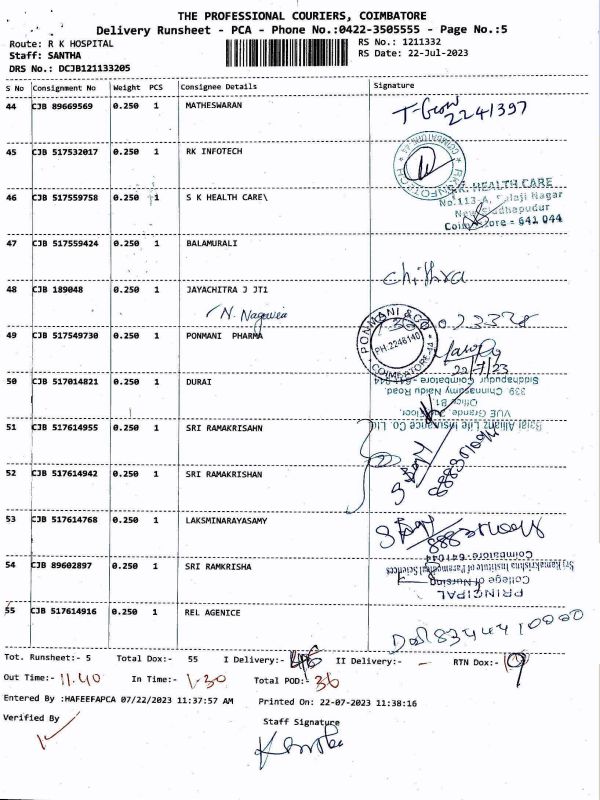 THE PROFESSIONAL COURIERS, COIMBATORE
Delivery Runsheet - PCA - Phone No.:0422-3505555 - Page No.:5
Route: R K HOSPITAL
RS No.: 1211332
Staff: SANTHA
RS Date: 22-Jul-2023
DRS No.: DCJB121133205
S No Consignment No Weight PCS Consignee Details Signature
44 CJB 89669569 0.250 1 MATHESWARAN
2241397
45 CJB 517532017 0.250 1 RK INFOTECH
RK INFOTECH * COIMBATORE-44 *
46 CJB 517559758 0.250 1 S K HEALTH CARE\
S.K. HEALTH CARE
No.113-A, Balaji Nagar
New Siddhapudur
Coimbatore - 641 044
47 CJB 517559424 0.250 1 BALAMURALI
Chithra
48 CJB 189048 0.250 1 JAYACHITRA J JT1
49 CJB 517549730 0.250 1 PONMANI PHARMA
PONMANI & CO
PH.2246140
* COIMBATORE-44 *
22/7/23
50 CJB 517014821 0.250 1 DURAI
Siddhapudur Coimbatore - 641 044
339, Chinnasamy Naidu Road,
Office B1
VUE Grande, Floor,
Bajaj Allianz Life Insurance Co. Ltd
51 CJB 517614955 0.250 1 SRI RAMAKRISAHN
52 CJB 517614942 0.250 1 SRI RAMAKRISHAN
53 CJB 517614768 0.250 1 LAKSMINARAYASAMY
Coimbatore-641044
54 CJB 89602897 0.250 1 SRI RAMKRISHA
Sri Ramakrishna Institute of Paramedical Sciences
College of Nursing
PRINCIPAL
55 CJB 517614916 0.250 1 REL AGENICE
Tot. Runsheet:- 5 Total Dox:- 55 I Delivery:- II Delivery:- - RTN Dox:-
Out Time:- 11.40 In Time:- 1-30 Total POD:- 36
Entered By :HAFEEFAPCA 07/22/2023 11:37:57 AM Printed On: 22-07-2023 11:38:16
Verified By
Staff Signature